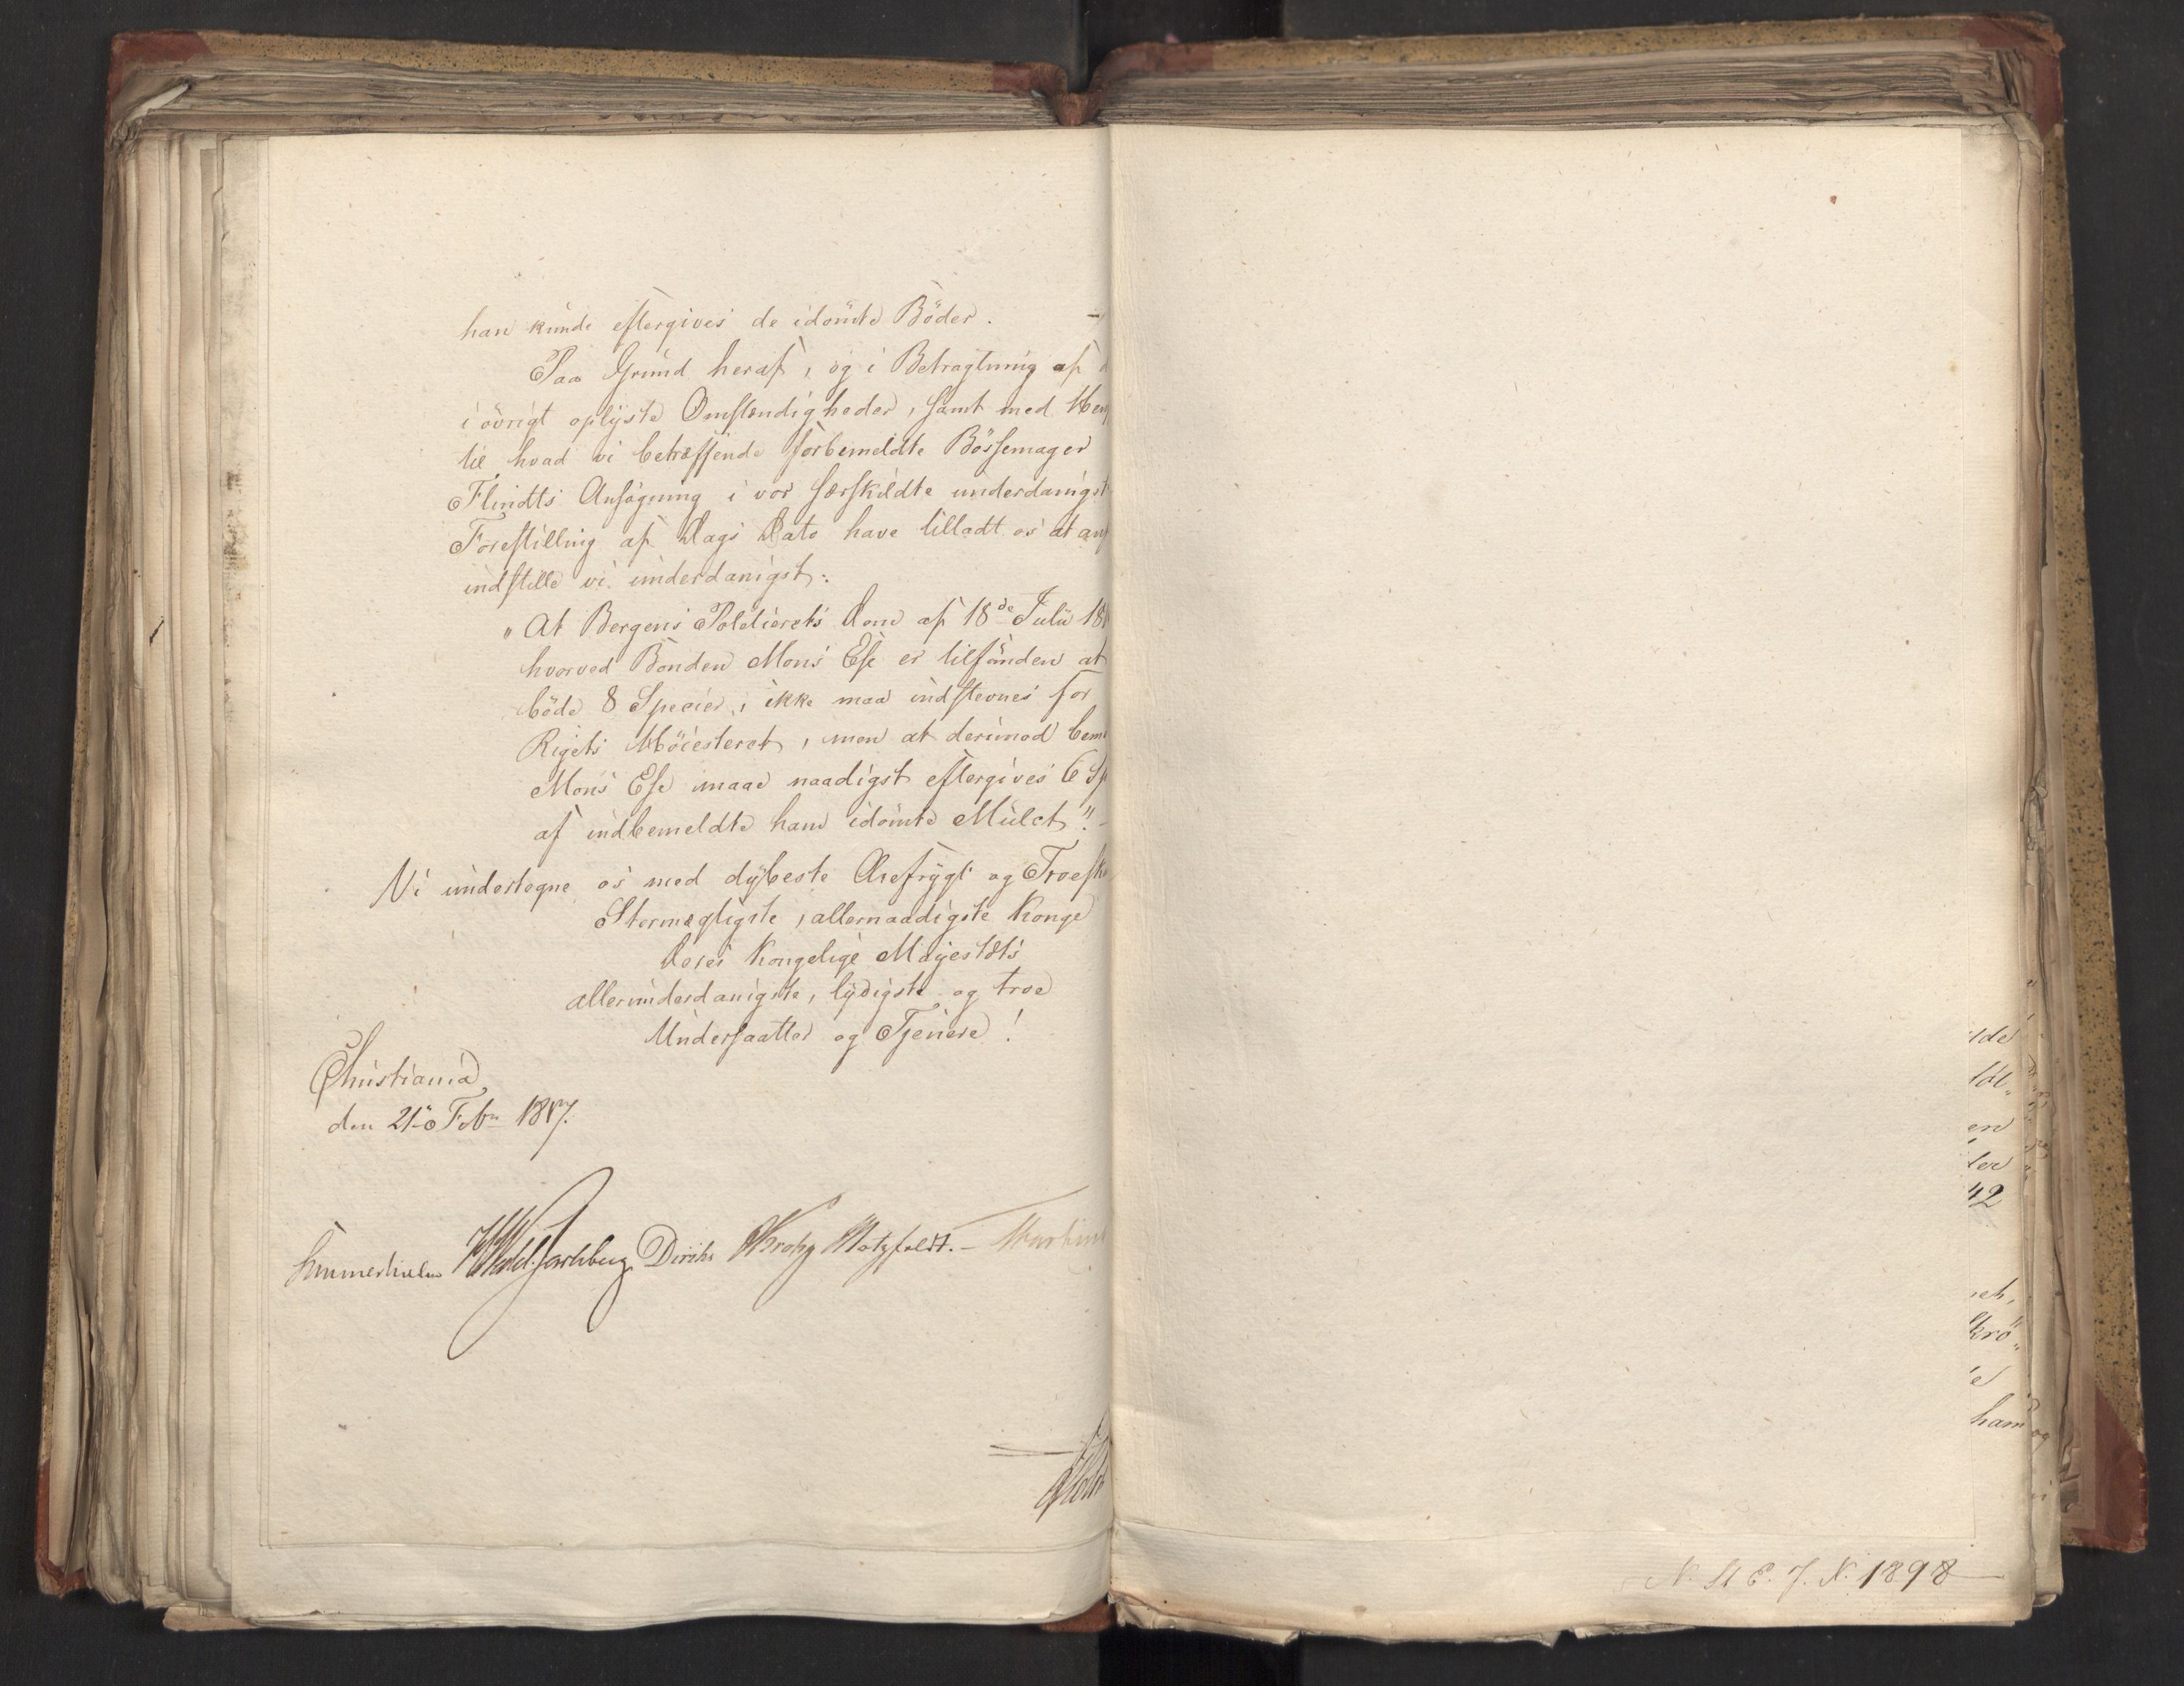 han kunde eftergives de idömte Böder.
Paa Grund heraf, og i Betragtning af
i övrigt oplyste Omstændigheder, samt med Hen
til hvad vi betræffende forbemeldte Bössemager
Flindts Ansögning i vor særskildte underdanigst
Forestilling af Dags Dato have tilladt os at anf
indstille vi underdanigst:
"At Bergens Politierets Dom af 18de Julii 18
hvorved Bonden Mons Ese er tilfunden at
böde 8 Specier, ikke maa indstevnes for
Rigets Höiesteret, men at derimod bem
Mons Ese maae naadigst eftergives 6 Sp
af indbemeldte ham idömte Mulct".
Vi undertegne os med dybeste Ærefrygt og Troesk
Stormægtigste, allernaadigste Konge
Deres Kongelige Majestæts
allerunderdanigste, lydigste og troe
Undersaatter og Tjenere!
Christiania
den 21de Febr 1817.
Sommerhielm Wedel Jarlsberg Diriks Krohg Motzfeldt.
Holst
N. St. E. J. N. 1898
lde
en
ter
42
et,
krö
ham og